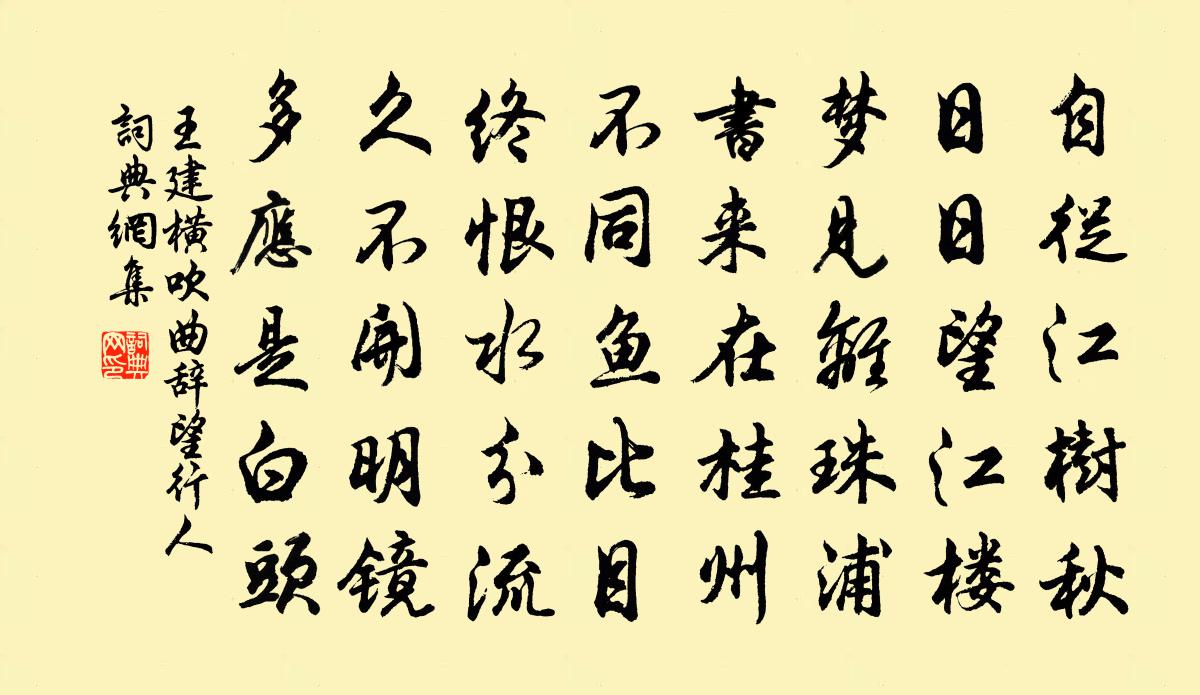 自從江樹秋
日日望江楼
梦見離珠浦
書来在桂州
不同鱼比目
终恨水分流
久不開明镜
多應是白頭
王建横吹曲辞望行人
詞典網集
詞典网印